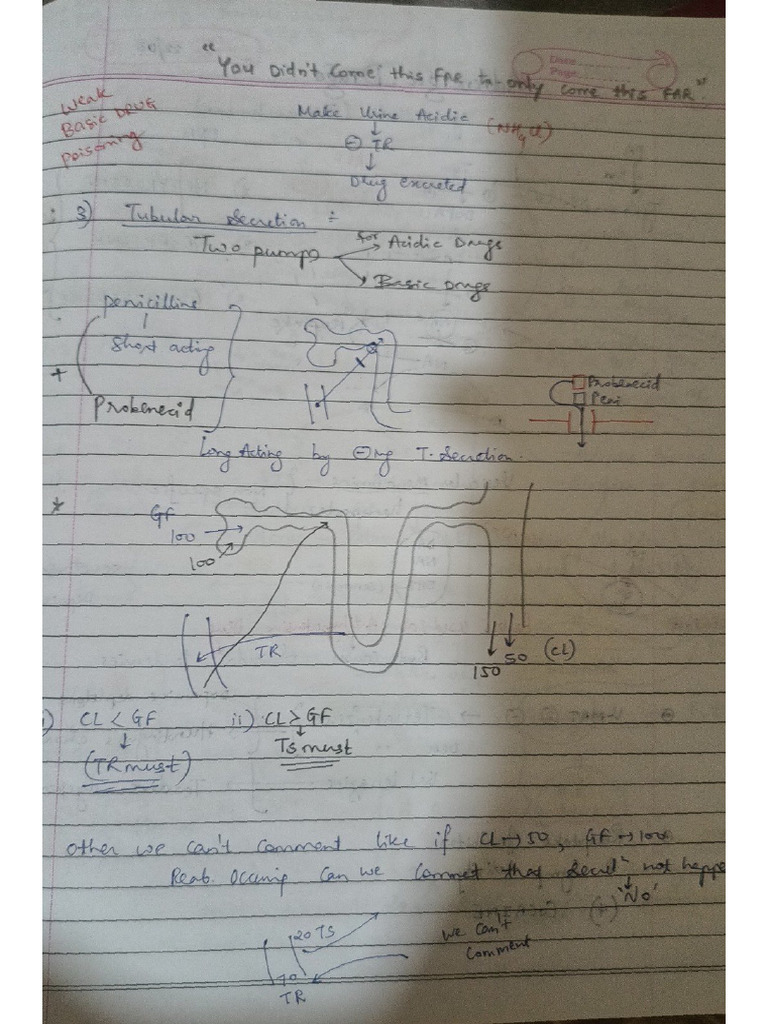 "You Didn't Come, this FAR, to only come this FAR"
Date
Page
Weak
Basic DRUG
poisoning
Make Urine Acidic (NH4Cl)
⊖ TR
Drug excreted
3) Tubular Secretion :-
Two pumps for Acidic Drugs
Basic Drugs
penicilline
Short acting
+
Probenecid
Probenecid
Peni
Long Acting by ⊖ng T. Secretion.
*
GF
100
100
TR
150
50 (CL)
i) CL < GF ii) CL > GF
(TR must) TS must
Other we can't comment like if CL→50, GF→100
Reab. Occuring Can we Commet that Secreⁿ not happe
'No'
20 TS
We Can't
Comment
TR